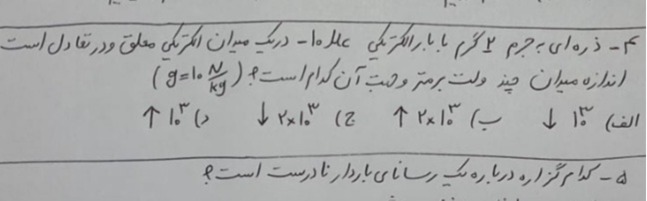 ۴- ذره ای به جرم ۲ گرم با بار الکتریکی -۱۰μc در یک میدان الکتریکی معلق و در تعادل است
اندازه میدان چند ولت بر متر و جهت آن کدام است؟ (g=۱۰ N/kg)
الف) ۱۰^۳ ↓ ب) ۲×۱۰^۳ ↑ ج) ۲×۱۰^۳ ↓ د) ۱۰^۳ ↑
۵- کدام گزاره درباره یک رسانای باردار نادرست است؟